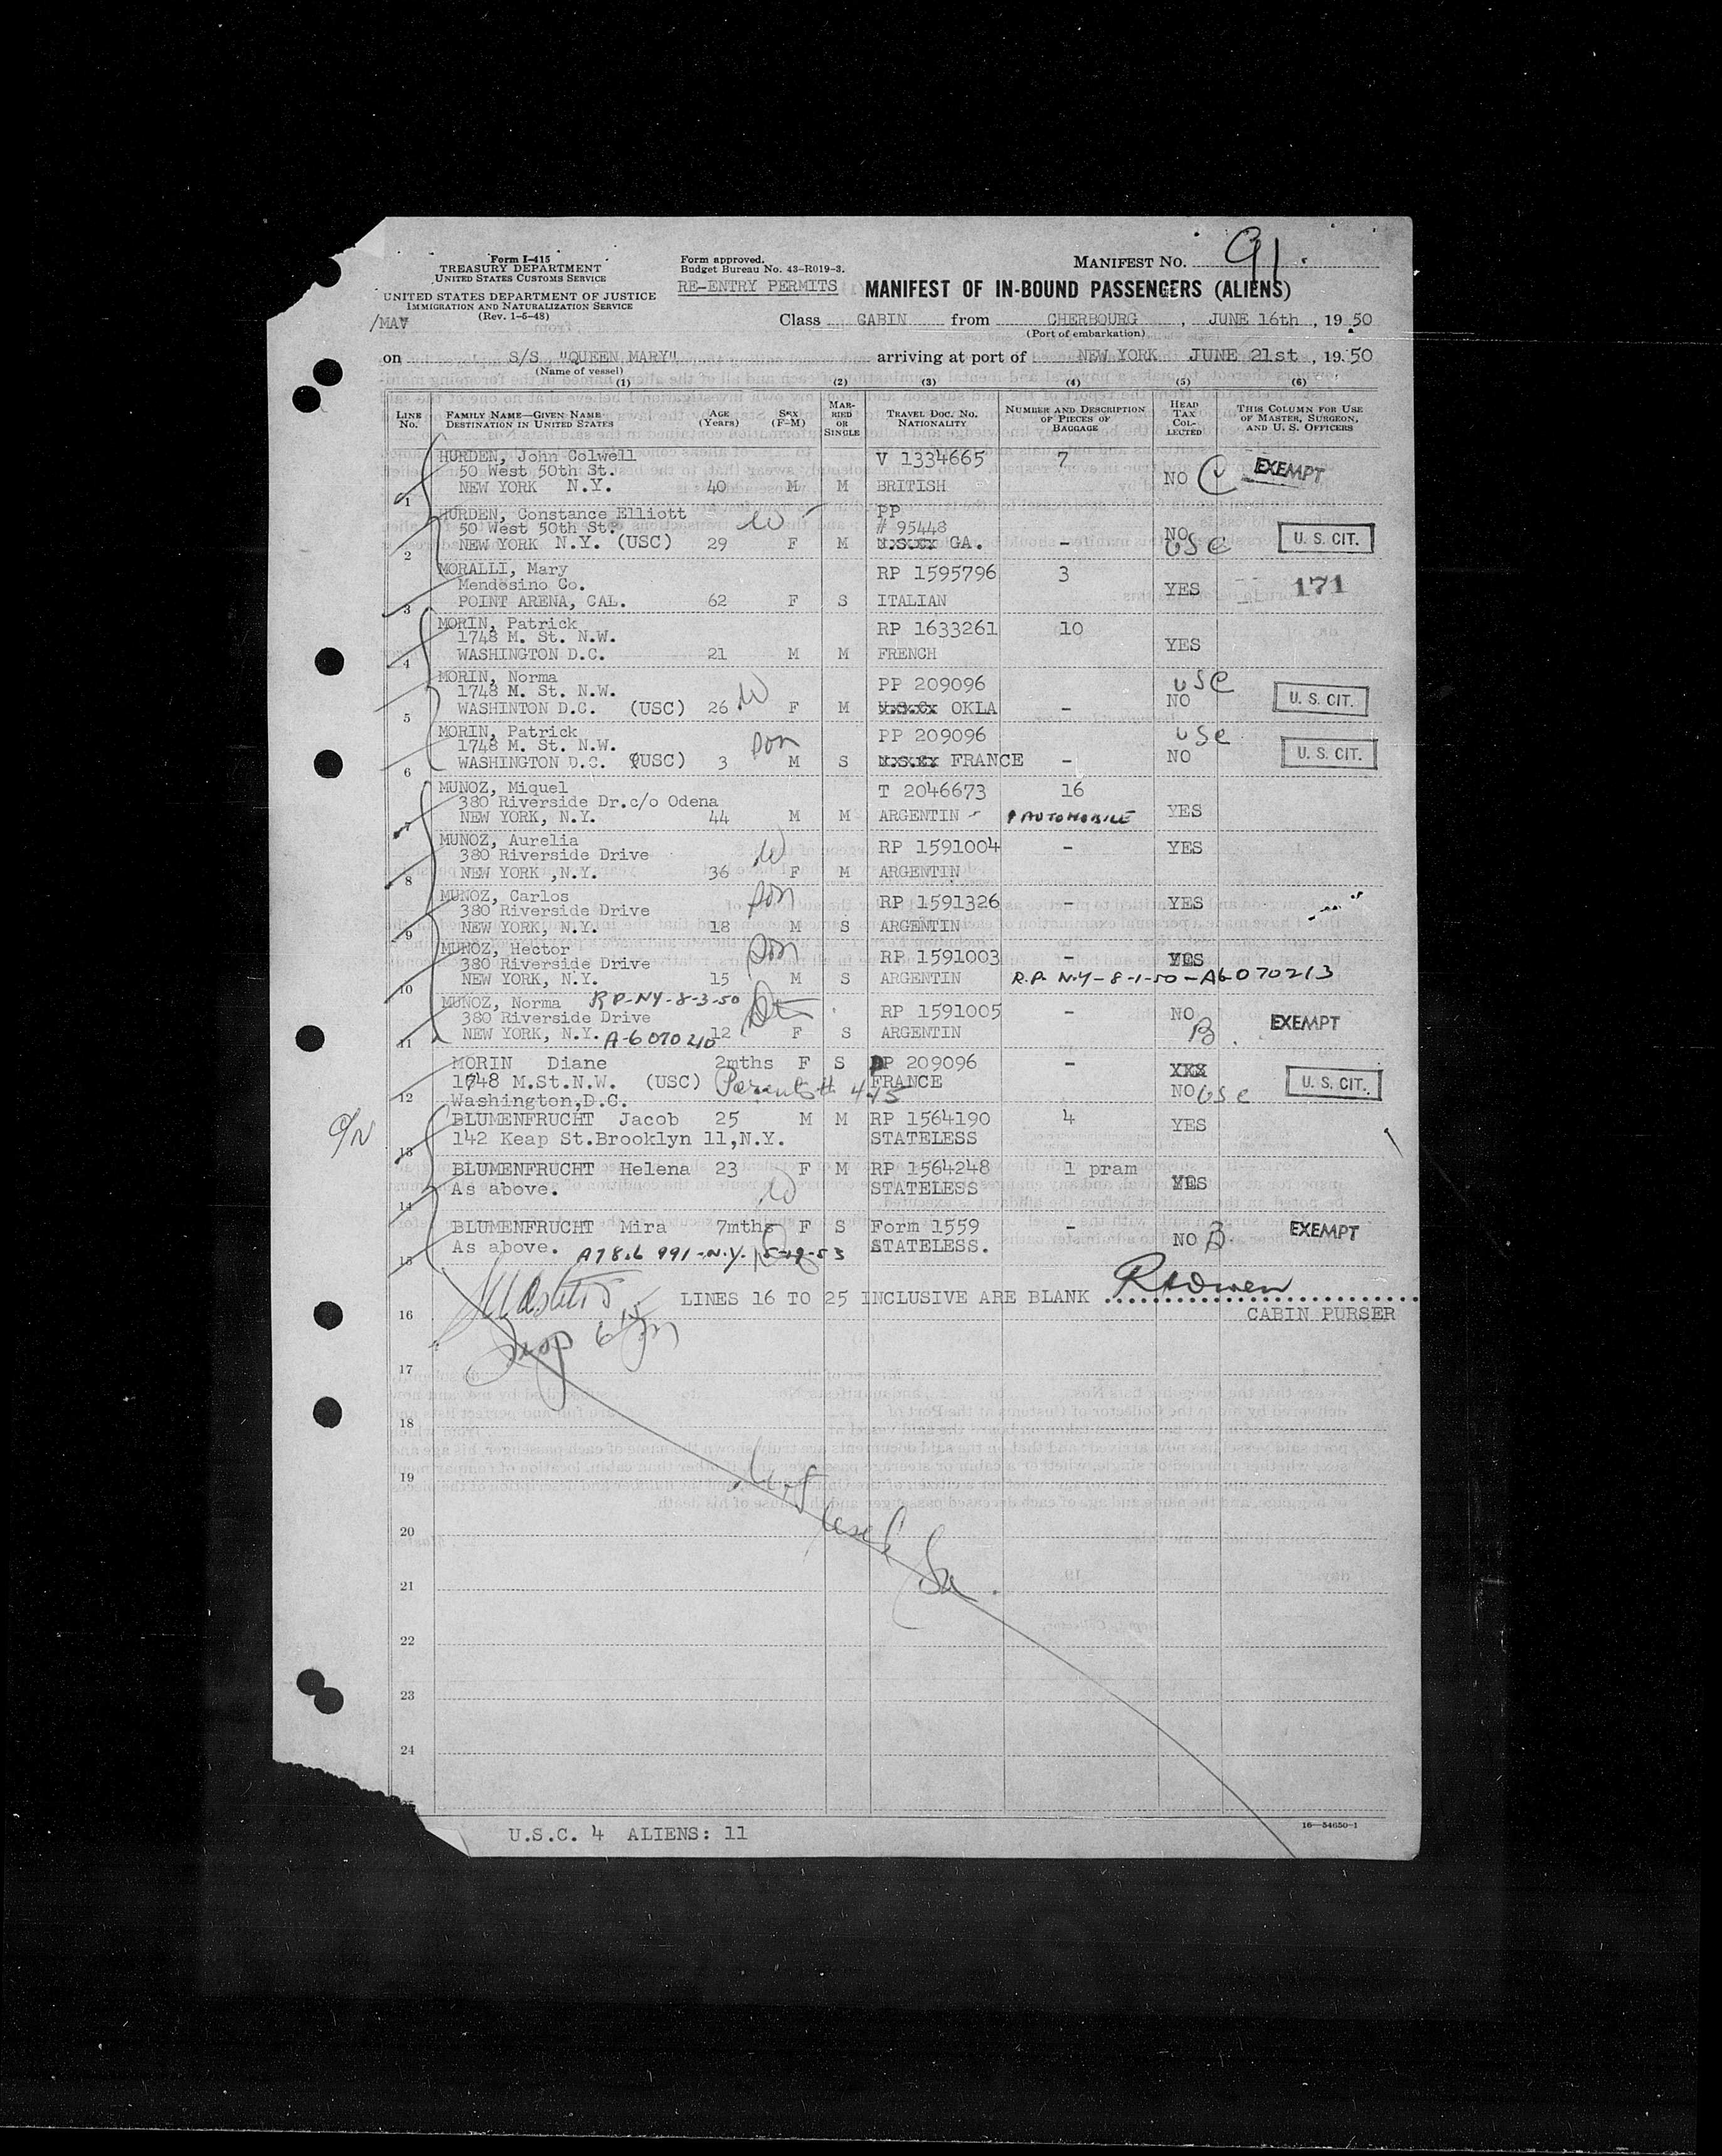 Form I-415
TREASURY DEPARTMENT
UNITED STATES CUSTOMS SERVICE
UNITED STATES DEPARTMENT OF JUSTICE
IMMIGRATION AND NATURALIZATION SERVICE
(Rev. 1-6-48)
/MAV
Form approved.
Budget Bureau No. 43-R019-3.
RE-ENTRY PERMITS
MANIFEST NO. 91.
MANIFEST OF IN-BOUND PASSENGERS (ALIENS)
Class CABIN from CHERBOURG, JUNE 16th, 19 50
(Port of embarkation)
on S/S "QUEEN MARY" arriving at port of NEW YORK JUNE 21st, 19 50
(Name of vessel)
(1) (2) (3) (4) (5) (6)
LINE No. FAMILY NAME—GIVEN NAME DESTINATION IN UNITED STATES AGE (Years) SEX (F-M) MARRIED OR SINGLE TRAVEL DOC. NO. NATIONALITY NUMBER AND DESCRIPTION OF PIECES OF BAGGAGE HEAD TAX COLLECTED THIS COLUMN FOR USE OF MASTER, SURGEON, AND U. S. OFFICERS
HURDEN, John Colwell V 1334665 7
50 West 50th St. NO EXEMPT
1 NEW YORK N.Y. 40 M M BRITISH
HURDEN, Constance Elliott W PP
50 West 50th St. # 95448 NO USC U. S. CIT.
2 NEW YORK N.Y. (USC) 29 F M GA. -
MORALLI, Mary RP 1595796 3
Mendosino Co. YES 171
3 POINT ARENA, CAL. 62 F S ITALIAN
MORIN, Patrick RP 1633261 10
1748 M. St. N.W. YES
4 WASHINGTON D.C. 21 M M FRENCH
MORIN, Norma PP 209096 USC
1748 M. St. N.W. W NO U. S. CIT.
5 WASHINTON D.C. (USC) 26 F M OKLA -
MORIN, Patrick PP 209096 USC
1748 M. St. N.W. Son NO U. S. CIT.
6 WASHINGTON D.C. (USC) 3 M S FRANCE -
MUNOZ, Miquel T 2046673 16
380 Riverside Dr.c/o Odena YES
7 NEW YORK, N.Y. 44 M M ARGENTIN 1 AUTOMOBILE
MUNOZ, Aurelia RP 1591004 - YES
380 Riverside Drive W
8 NEW YORK ,N.Y. 36 F M ARGENTIN
MUNOZ, Carlos Son RP 1591326 - YES
380 Riverside Drive
9 NEW YORK, N.Y. 18 M S ARGENTIN
MUNOZ, Hector Son RP 1591003 - YES
380 Riverside Drive
10 NEW YORK, N.Y. 15 M S ARGENTIN R.P. N.Y-8-1-50-A6070213
MUNOZ, Norma RP-NY-8-3-50 RP 1591005 - NO
380 Riverside Drive B EXEMPT
11 NEW YORK, N.Y. A-6070210 12 F S ARGENTIN
MORIN Diane 2mths F S PP 209096 - XXX
1748 M.St.N.W. (USC) Parents # 4+5 FRANCE NO USC U. S. CIT.
12 Washington,D.C.
BLUMENFRUCHT Jacob 25 M M RP 1564190 4 YES
13 142 Keap St.Brooklyn 11,N.Y. STATELESS
BLUMENFRUCHT Helena 23 F M RP 1564248 1 pram YES
14 As above. W STATELESS
BLUMENFRUCHT Mira 7mths F S Form 1559 - NO B EXEMPT
15 As above. STATELESS.
16 LINES 16 TO 25 INCLUSIVE ARE BLANK RADwen
CABIN PURSER
17
18
19
20
21
22
23
24
25
U.S.C. 4 ALIENS: 11
16—54650-1